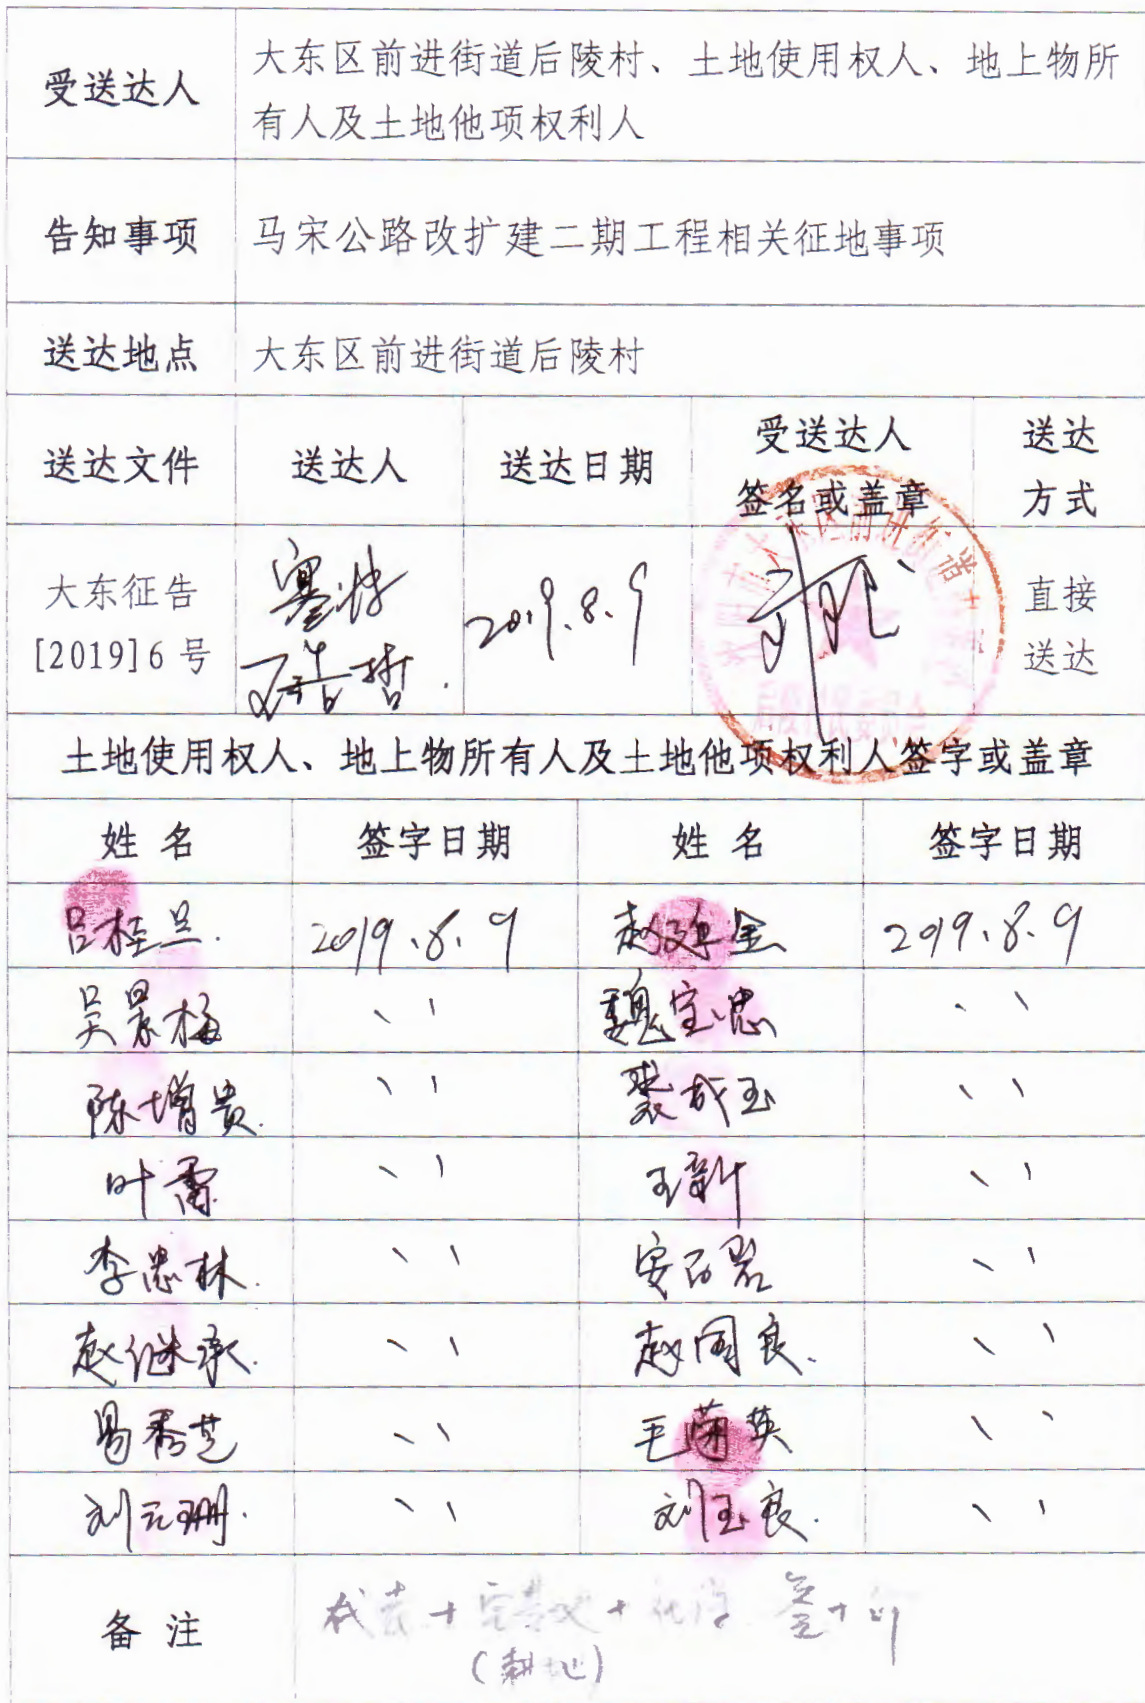 受送达人
大东区前进街道后陵村、土地使用权人、地上物所
有人及土地他项权利人
告知事项
马宋公路改扩建二期工程相关征地事项
送达地点
大东区前进街道后陵村
送达文件
送达人
送达日期
受送达人
签名或盖章
送达
方式
大东征告
[2019]6 号
2019.8.9
直接
送达
土地使用权人、地上物所有人及土地他项权利人签字或盖章
姓 名 签字日期 姓 名 签字日期
吕桂兰. 2019.8.9 赵廷金 2019.8.9
吴景梅 魏宝忠
陈增贵. 裴成玉
叶雷 王新
李忠林.
赵继承. 赵国良.
易秀芝 毛菊英
刘元珊. 刘玉良.
备 注
(耕地)